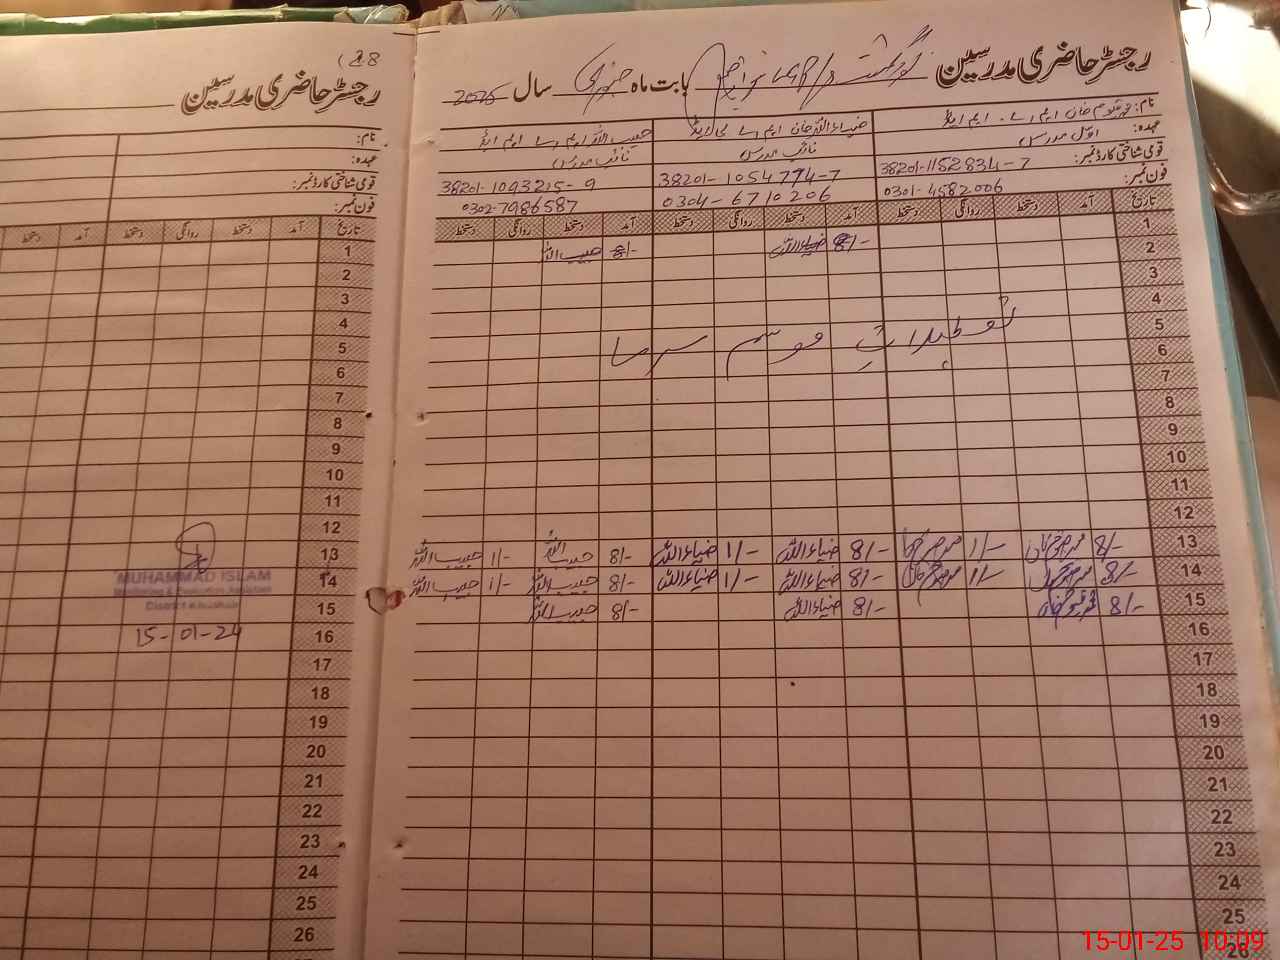 رجسٹر حاضری مدرسین گورنمنٹ بابت ماہ جنوری سال 2025
نام: محمد قیوم خان ایم اے . ایم ایڈ
ضیاء اللہ خان ایم اے بی ایڈ
حبیب اللہ ایم اے ایم ایڈ
عہدہ: اول مدرس
نائب مدرس
نائب مدرس
قومی شناختی کارڈ نمبر: 38201-1152834-7
38201-1054774-7
38201-1093215-9
فون نمبر: 0301-4582006
0304-6710206
0302-7986587
تاریخ آمد دستخط روانگی دستخط آمد دستخط روانگی دستخط آمد دستخط روانگی دستخط
1
2 8/- ضیاء اللہ 8/- حبیب اللہ
3
4
5
تعطیلات موسم سرما
6
7
8
9
10
11
12
13 8/- 1/- 8/- ضیاء اللہ 1/- ضیاء اللہ 8/- حبیب اللہ 1/- حبیب اللہ
14 8/- 1/- 8/- ضیاء اللہ 1/- ضیاء اللہ 8/- حبیب اللہ 1/- حبیب اللہ
15 8/- 8/- ضیاء اللہ 8/- حبیب اللہ
16
17
18
19
20
21
22
23
24
25
26
رجسٹر حاضری مدرسین
نام:
عہدہ:
قومی شناختی کارڈ نمبر:
فون نمبر:
تاریخ آمد دستخط روانگی دستخط آمد دستخط
1
2
3
4
5
6
7
8
9
10
11
12
13
14
15
16
17
18
19
20
21
22
23
24
25
26
MUHAMMAD ISLAM
Monitoring & Evaluation Assistant
District Khushab
15-01-24
15-01-25 10:09